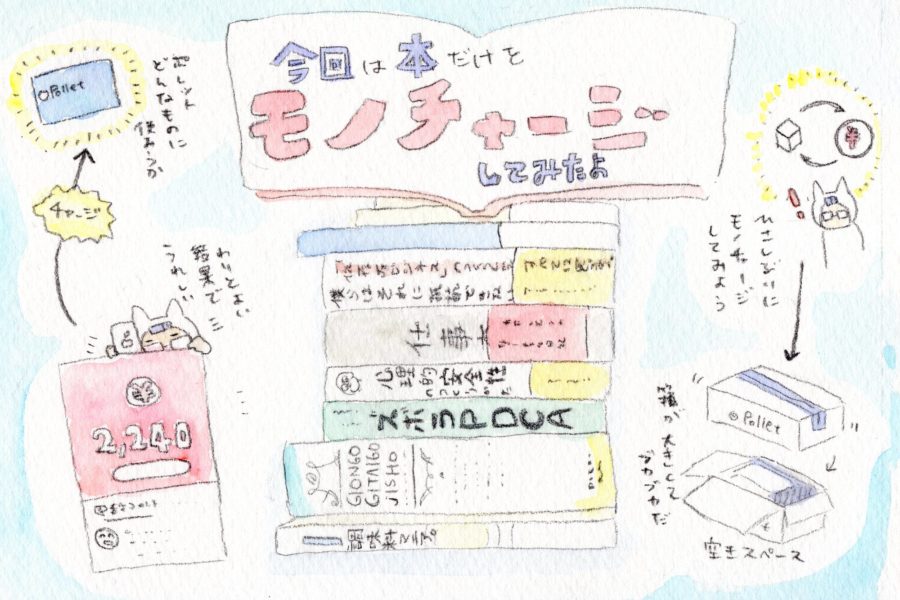 今回は本だけを
モノチャージ
してみたよ
ひさしぶりに
モノチャージ
してみよう
Pollet
箱が大きくて
ブカブカだ
空きスペース
仕事
心理的安全性
ズボラPDCA
GIONGO
GITAIGO
JISHO
調味料マニア。
わりとよい
結果で
うれしい
¥
2,240
チャージ
Pollet
ポレット
どんなものに
使おうか